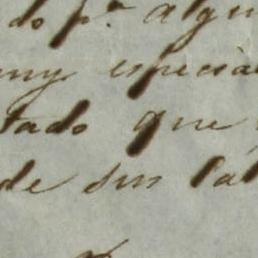 do p.ª algu
muy especia
tado que
de sus la